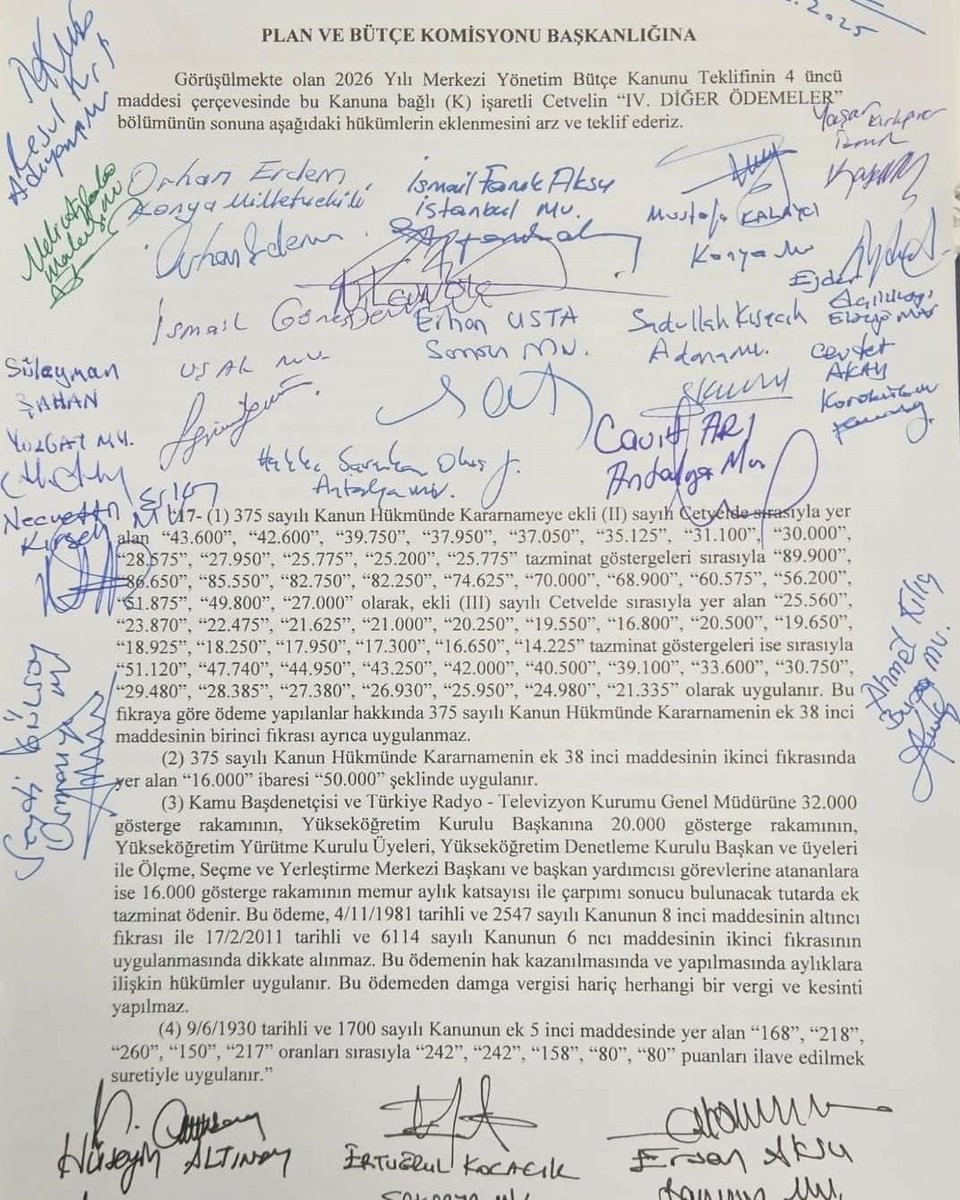 .2025
PLAN VE BÜTÇE KOMİSYONU BAŞKANLIĞINA
Görüşülmekte olan 2026 Yılı Merkezi Yönetim Bütçe Kanunu Teklifinin 4 üncü
maddesi çerçevesinde bu Kanuna bağlı (K) işaretli Cetvelin “IV. DİĞER ÖDEMELER”
bölümünün sonuna aşağıdaki hükümlerin eklenmesini arz ve teklif ederiz.
Resul Kurt
Adıyaman
Orhan Erdem
Konya Milletvekili
Orhan Erdem
İsmail Faruk Aksu
İstanbul Mv.
Mustafa KALAYCI
Konya Mv
Yaşar Kırkpınar
İzmir
İsmail Güneş
UŞAK MV.
Erhan USTA
Samsun Mv.
Sadullah Kısacık
Adana Mv.
Ejder
Açıkkapı
Elazığ Mv
Cevdet
AKAY
Karabük
Süleyman
ŞAHAN
YOZGAT MV.
Cavit ARI
Antalya Mv
Antalya Mv.
Necmettin Erkan
Kırşehir Mv
“17- (1) 375 sayılı Kanun Hükmünde Kararnameye ekli (II) sayılı Cetvelde sırasıyla yer
alan “43.600”, “42.600”, “39.750”, “37.950”, “37.050”, “35.125”, “31.100”, “30.000”,
“28.575”, “27.950”, “25.775”, “25.200”, “25.775” tazminat göstergeleri sırasıyla “89.900”,
“86.650”, “85.550”, “82.750”, “82.250”, “74.625”, “70.000”, “68.900”, “60.575”, “56.200”,
“51.875”, “49.800”, “27.000” olarak, ekli (III) sayılı Cetvelde sırasıyla yer alan “25.560”,
“23.870”, “22.475”, “21.625”, “21.000”, “20.250”, “19.550”, “16.800”, “20.500”, “19.650”,
“18.925”, “18.250”, “17.950”, “17.300”, “16.650”, “14.225” tazminat göstergeleri ise sırasıyla
“51.120”, “47.740”, “44.950”, “43.250”, “42.000”, “40.500”, “39.100”, “33.600”, “30.750”,
“29.480”, “28.385”, “27.380”, “26.930”, “25.950”, “24.980”, “21.335” olarak uygulanır. Bu
fıkraya göre ödeme yapılanlar hakkında 375 sayılı Kanun Hükmünde Kararnamenin ek 38 inci
maddesinin birinci fıkrası ayrıca uygulanmaz.
Ahmet Kılıç
Bursa Mv.
(2) 375 sayılı Kanun Hükmünde Kararnamenin ek 38 inci maddesinin ikinci fıkrasında
yer alan “16.000” ibaresi “50.000” şeklinde uygulanır.
(3) Kamu Başdenetçisi ve Türkiye Radyo - Televizyon Kurumu Genel Müdürüne 32.000
gösterge rakamının, Yükseköğretim Kurulu Başkanına 20.000 gösterge rakamının,
Yükseköğretim Yürütme Kurulu Üyeleri, Yükseköğretim Denetleme Kurulu Başkan ve üyeleri
ile Ölçme, Seçme ve Yerleştirme Merkezi Başkanı ve başkan yardımcısı görevlerine atananlara
ise 16.000 gösterge rakamının memur aylık katsayısı ile çarpımı sonucu bulunacak tutarda ek
tazminat ödenir. Bu ödeme, 4/11/1981 tarihli ve 2547 sayılı Kanunun 8 inci maddesinin altıncı
fıkrası ile 17/2/2011 tarihli ve 6114 sayılı Kanunun 6 ncı maddesinin ikinci fıkrasının
uygulanmasında dikkate alınmaz. Bu ödemenin hak kazanılmasında ve yapılmasında aylıklara
ilişkin hükümler uygulanır. Bu ödemeden damga vergisi hariç herhangi bir vergi ve kesinti
yapılmaz.
(4) 9/6/1930 tarihli ve 1700 sayılı Kanunun ek 5 inci maddesinde yer alan “168”, “218”,
“260”, “150”, “217” oranları sırasıyla “242”, “242”, “158”, “80”, “80” puanları ilave edilmek
suretiyle uygulanır.”
Hüseyin ALTINSOY
ERTUĞRUL KOCACIK
Ersan AKSU